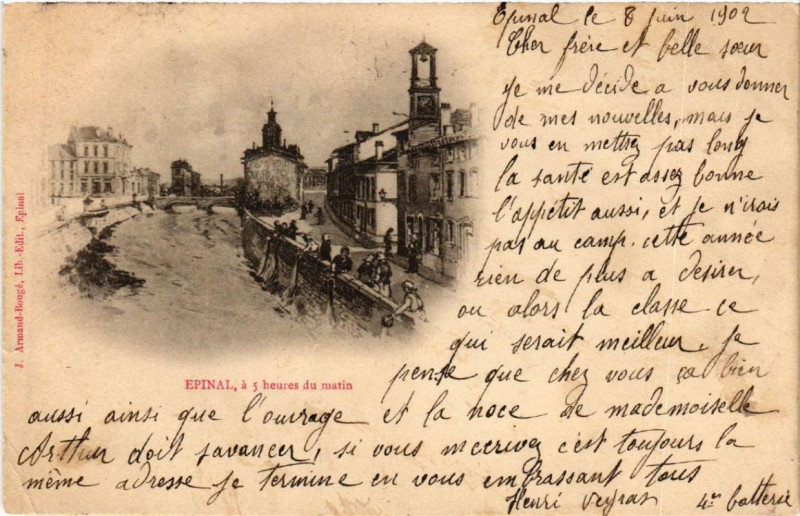 Epinal le 8 juin 1902
Cher frère et belle sœur
Je me décide a vous donner
de mes nouvelles, mais je
vous en mettrez pas long
la santé est assez bonne
l'appétit aussi, et je n'irais
pas au camp. cette année
rien de plus a desirer,
ou alors la classe ce
qui serait meilleur, Je
pense que chez vous ça bien
aussi ainsi que l'ouvrage et la noce de mademoiselle
Arthur doit savancer, si vous mecrivez c'est toujours la
même adresse Je termine en vous embrassant tous
Henri Veyrat 4e batterie
EPINAL, à 5 heures du matin
J. Armand-Bougé, Lib.-Edit., Epinal